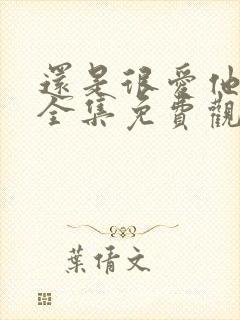 還是很愛他
全集免費觀
葉倩文